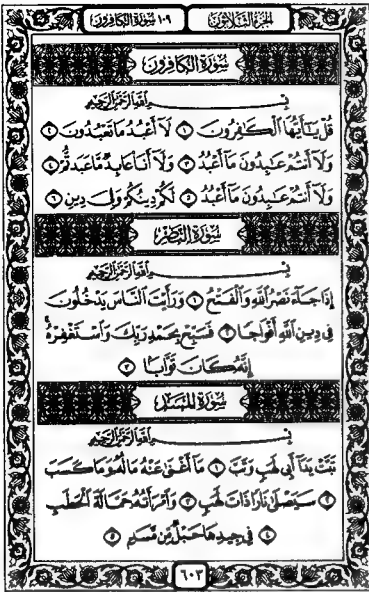 الجزء الثلاثون
١٠٩ سورة الكافرون
سُورَةُ الكَافِرُون
بِسْمِ ٱللَّهِ ٱلرَّحْمَٰنِ ٱلرَّحِيمِ
قُلْ يَٰٓأَيُّهَا ٱلْكَٰفِرُونَ ١ لَآ أَعْبُدُ مَا تَعْبُدُونَ ٢
وَلَآ أَنتُمْ عَٰبِدُونَ مَآ أَعْبُدُ ٣ وَلَآ أَنَا۠ عَابِدٌ مَّا عَبَدتُّمْ ٤
وَلَآ أَنتُمْ عَٰبِدُونَ مَآ أَعْبُدُ ٥ لَكُمْ دِينُكُمْ وَلِىَ دِينِ ٦
سُورَةُ النَّصْر
بِسْمِ ٱللَّهِ ٱلرَّحْمَٰنِ ٱلرَّحِيمِ
إِذَا جَآءَ نَصْرُ ٱللَّهِ وَٱلْفَتْحُ ١ وَرَأَيْتَ ٱلنَّاسَ يَدْخُلُونَ
فِى دِينِ ٱللَّهِ أَفْوَاجًا ٢ فَسَبِّحْ بِحَمْدِ رَبِّكَ وَٱسْتَغْفِرْهُ ۚ
إِنَّهُۥ كَانَ تَوَّابًۢا ٣
سُورَةُ المَسَد
بِسْمِ ٱللَّهِ ٱلرَّحْمَٰنِ ٱلرَّحِيمِ
تَبَّتْ يَدَآ أَبِى لَهَبٍ وَتَبَّ ١ مَآ أَغْنَىٰ عَنْهُ مَالُهُۥ وَمَا كَسَبَ
٢ سَيَصْلَىٰ نَارًا ذَاتَ لَهَبٍ ٣ وَٱمْرَأَتُهُۥ حَمَّالَةَ ٱلْحَطَبِ
٤ فِى جِيدِهَا حَبْلٌ مِّن مَّسَدٍۭ ٥
٦٠٣